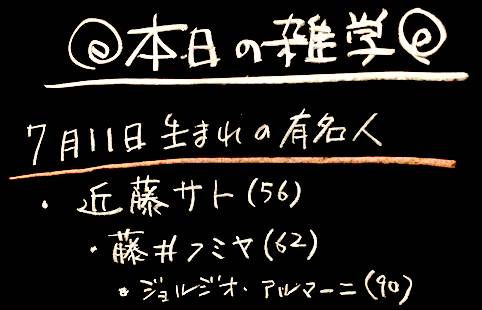 本日の雑学
7月11日生まれの有名人
・近藤サト(56)
・藤井フミヤ(62)
・ジョルジオ・アルマーニ(90)